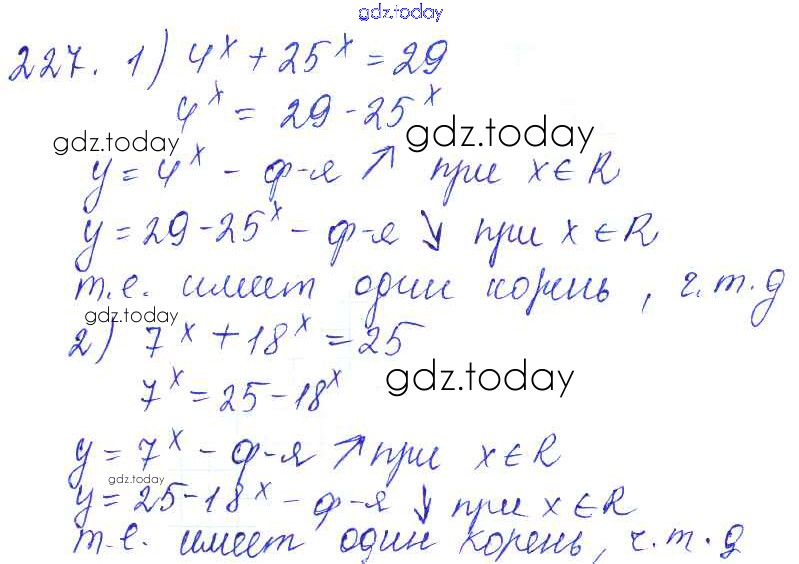 gdz.today
227. 1) 4^x + 25^x = 29
4^x = 29 - 25^x
gdz.today gdz.today
y = 4^x - ф-я ↗ при x ∈ R
y = 29 - 25^x - ф-я ↘ при x ∈ R
т.е. имеет один корень, ч.т.д
gdz.today
2) 7^x + 18^x = 25
7^x = 25 - 18^x
gdz.today
y = 7^x - ф-я ↗ при x ∈ R
gdz.today
y = 25 - 18^x - ф-я ↓ при x ∈ R
т.е. имеет один корень, ч.т.д